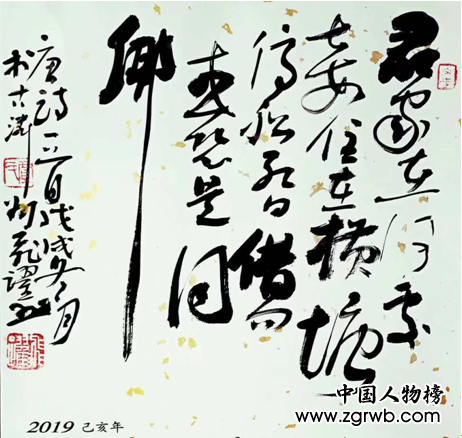 君家在何處
妾住在横塘
停船暫借問
或恐是同
鄉
唐詩一首戊戌冬月
飛躍書
2019 己亥年
中国人物榜
www.zgrwb.com